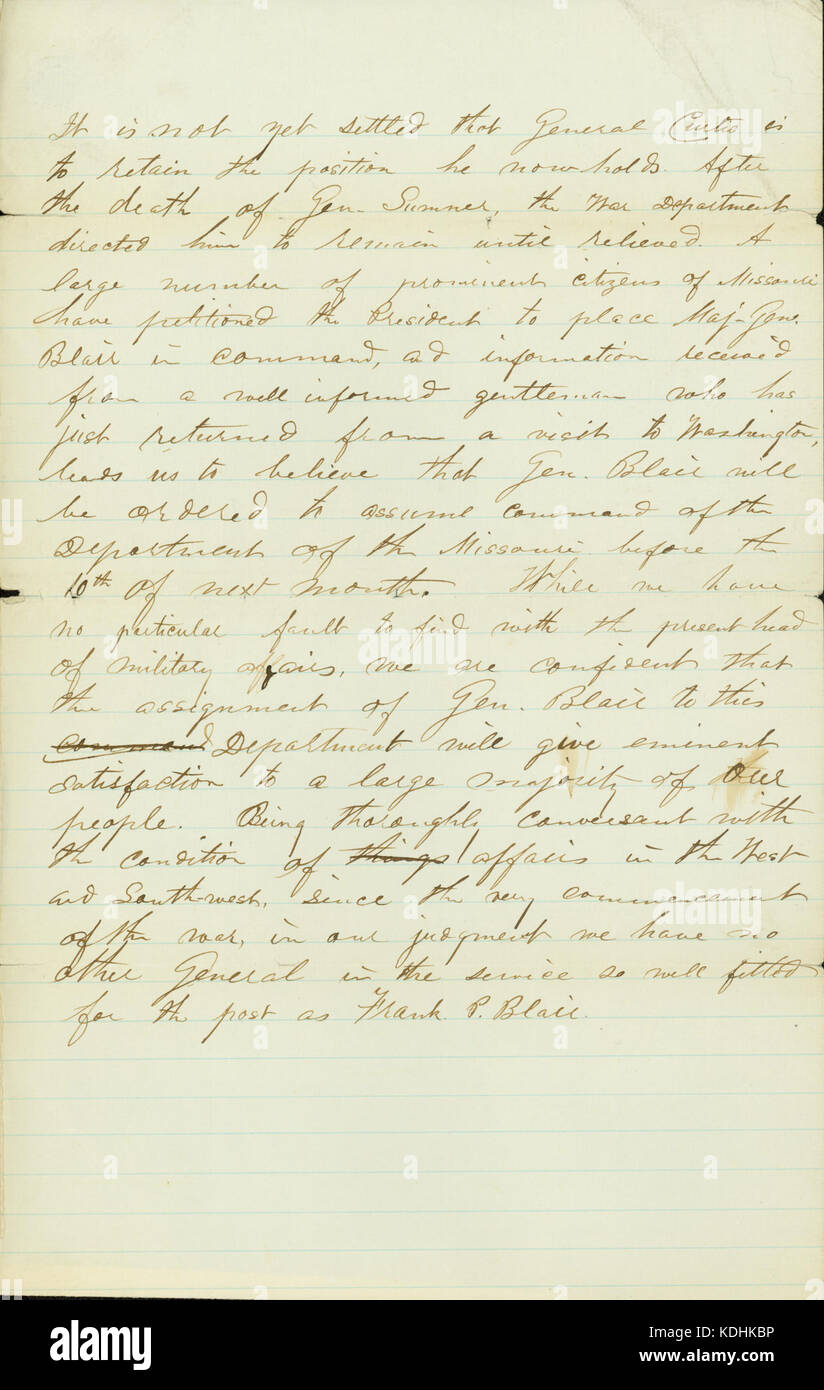 It is not yet settled that General Curtis is
to retain the position he now holds. After
the death of Gen. Sumner, the War Department
directed him to remain until relieved. A
large number of prominent citizens of Missouri
have petitioned the President to place Maj-Gen.
Blair in command, and information received
from a well informed gentleman who has
just returned from a visit to Washington,
leads us to believe that Gen. Blair will
be ordered to assume command of the
Department of the Missouri before the
10th of next month. While we have
no particular fault to find with the present head
of military affairs, we are confident that
the assignment of Gen. Blair to this
command Department will give eminent
satisfaction to a large majority of our
people. Being thoroughly conversant with
the condition of things affairs in the West
and South-west, since the very commencement
of the war, in our judgment we have no
other General in the service so well fitted
for the post as Frank P. Blair.
alamy
alamy
a
alamy
Image ID: KDHKBP
www.alamy.com